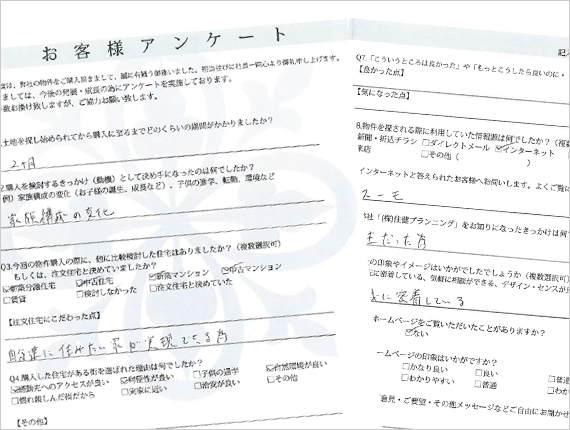 お客様アンケート
度は、弊社の物件をご購入頂きまして、誠に有難う御座いました。担当並びに社員一同心より御礼申し上げます。
ましては、今後の発展・成長の為にアンケートを実施しております。
数お掛け致しますが、ご協力お願い致します。
土地を探し始められてから購入に至るまでどのくらいの期間がかかりましたか？
2ヶ月
2.購入を検討するきっかけ（動機）として決め手になったのは何でしたか？
例）家族構成の変化（お子様の誕生、成長など）、子供の進学、転勤、環境など
家族構成の変化
Q3.今回の物件購入の際に、他に比較検討した住宅はありましたか？（複数選択可）
もしくは、注文住宅と決めていましたか？
☑新築分譲住宅 ☑中古住宅 ☑新築マンション ☑中古マンション
□賃貸 □検討しなかった □注文住宅と決めていた
【注文住宅にこだわった点】
自分達に住みたい家が実現できる為
Q4.購入した住宅がある街を選ばれた理由は何でしたか？
☑勤務先へのアクセスが良い ☑利便性が良い □子供の通学 ☑自然環境が良い
□慣れ親しんだ街だから □実家に近い □治安が良い □その他
【その他】
記入
Q7.「こういうところは良かった」や「もっとこうしたら良いのに・
【良かった点】
【気になった点】
8.物件を探される際に利用していた情報源は何でしたか？（複
新聞・折込チラシ □ダイレクトメール ☑インターネット
来店 □その他（ ）
インターネットと答えられたお客様へお伺いします。よくご覧に
スーモ
社「(株)住健プランニング」をお知りになったきっかけは何で
の印象やイメージはいかがでしたでしょうか（複数選択可）
に密着している、気軽に相談ができる、デザイン・センスが
に密着している
ホームページをご覧いただいたことがありますか？
☑ない
ームページの印象はいかがですか？
□かなり良い □良い □普通
□わかりやすい □普通 □わか
意見・ご要望・その他メッセージなどご自由にお聞かせ